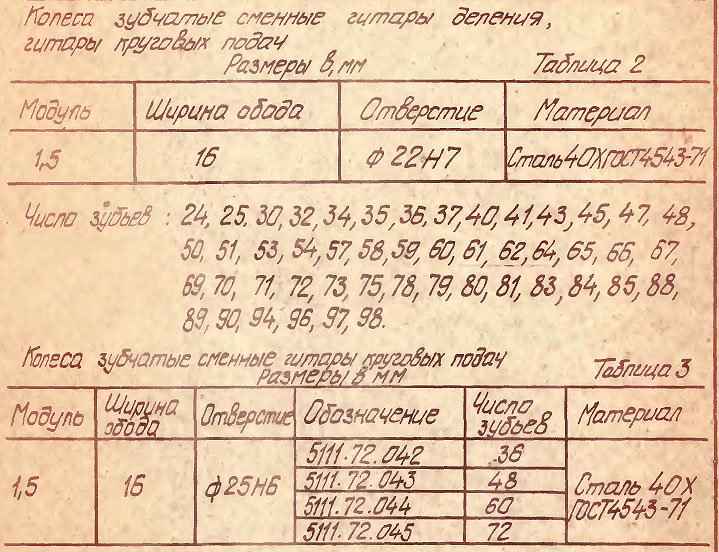 Колеса зубчатые сменные гитары деления,
гитары круговых подач
Размеры в, мм Таблица 2
Модуль Ширина обода Отверстие Материал
1,5 16 ф 22H7 Сталь 40Х ГОСТ4543-71
Число зубьев : 24, 25. 30, 32, 34, 35, 36, 37, 40, 41, 43, 45, 47, 48,
50, 51, 53, 54, 57, 58, 59, 60, 61, 62, 64, 65, 66, 67,
69, 70, 71, 72, 73, 75, 78, 79, 80, 81, 83, 84, 85, 88,
89, 90, 94, 96, 97, 98.
Колеса зубчатые сменные гитары круговых подач
Размеры в мм Таблица 3
Модуль Ширина обода Отверстие Обозначение Число зубьев Материал
1,5 16 ф25H6 5111.72.042 36 Сталь 40Х ГОСТ4543-71
5111.72.043 48
5111.72.044 60
5111.72.045 72